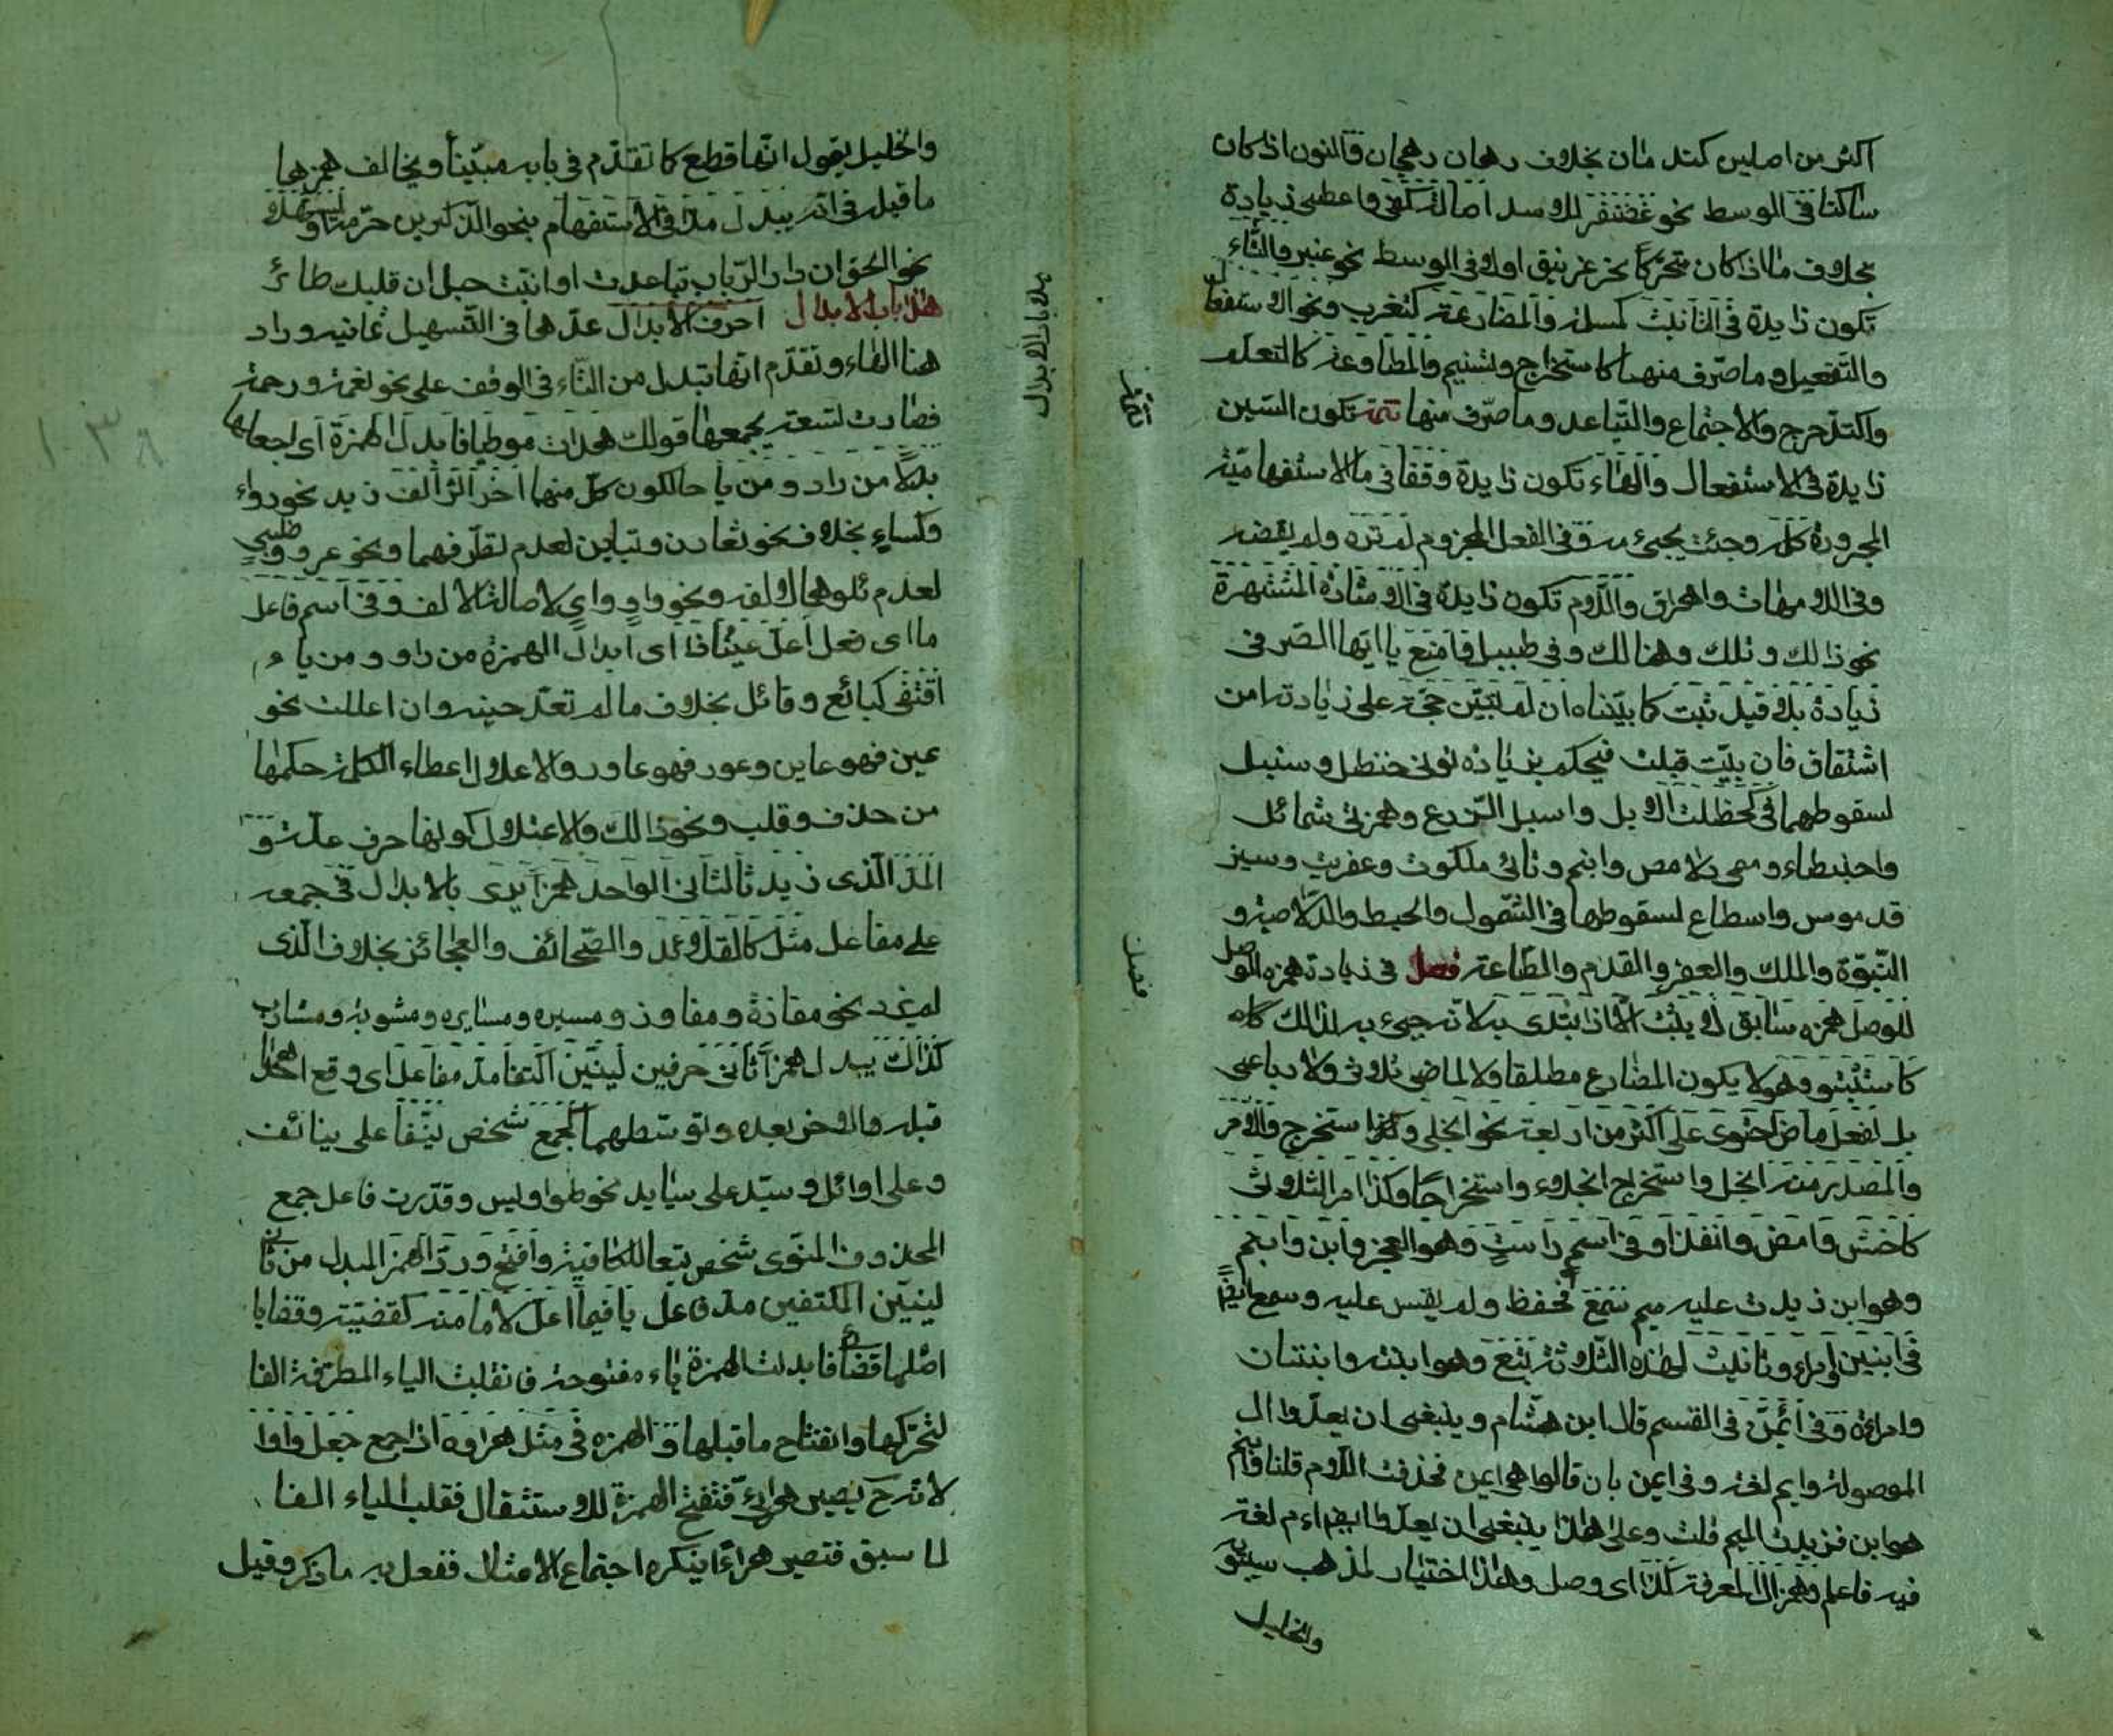 اكثر من اصلين كندمان بخلاف رهان وهجان والنون اذ كان
ساكنا فى الوسط نحو غضنفر للاسد اصالة كفى واعطى زيادة
بخلاف ما اذا كان متحركا نحو غرنيق اولا فى الوسط نحو عنبر والتاء
تكون زايدة فى التانيث كمسلمة والمضارعة كتغرب ونحو الاستفعال
والتفعيل وما صرف منهما كاستخراج وتسنيم والمطاوعة كالتعلم
والتدحرج والاجتماع والتباعد وما صرف منها تتمة تكون السين
زايدة فى الاستفعال والهاء تكون زايدة وقفا فى ما الاستفهامية
المجرورة كلمه وجئت مجيء مه وفى الفعل المجزوم لم تره ولم يقضه
وفى الامهات واهراق واللام تكون زايدة فى الاشارة المشتهرة
نحو ذلك وتلك وهنالك وفى طيسل وامنع يا ايها الصرفى
زيادة بلا قيد ثبت كما بيناه ان لم تبين حجة على زيادته من
اشتقاق فان بينت قبلت فيحكم بزيادة نونى حنظل وسنبل
لسقوطهما فى حظلت الابل واسبل الزرع وهمزتى شمائل
واحبنطاء وميمى دلامص وابنم وتائى ملكوت وعفريت وسين
قدموس واسطاع لسقوطها فى الشمول والحبط والدلاصة و
النبوة والملك والعفر والقدم والطاعة فصل فى زيادة همزة الوصل
للوصل همزه سابق لا يثبت الا اذا ابتدى به لانه جيء به لذلك كاه
كاستثبتوا وهو لا يكون المضارع مطلقا ولا لماضى ثلاثى ولا رباعى
بل لفعل ماض احتوى على اكثر من اربعة نحو انجلى وكذا استخرج والامر
والمصدر منه انجل واستخرج انجلاء واستخراجا وكذا امر الثلاثى
كاخش وامض وانفذا وفى اسم واست وهو العجز وابن وابنم
وهو ابن زيدت عليه ميم سمع فحفظ ولم يقس عليه وسمع ايضا
فى اثنين امرء وتانيث لهذه الثلاثة تبع وهو ابنة واثنتان
وامراة وفى ايمن فى القسم قال ابن هشام وينبغى ان يعدوا ال
الموصولة وايم لغة فى ايمن بان قالوا هى ايمن فحذفت اللام قلنا وابنم
هو ابن فزيدت الميم قلت وعلى هذا ينبغى ان يعد ايضا ام لغة
فيه فاعلم وهمز ال المعرفة كذا اى وصل وهذا اختيار لمذهب سيبويه
والخليل
تتمة
فصل
هذا باب الابدال
والخليل يقول انها قطع كما تقدم فى بابه مبينا ويخالف همزها
ما قبله فى انه يبدل مدا فى الاستفهام بنحو الذكرين حرم او يسهل
نحو الحق ان دار الرباب تباعدت او انبت حبل ان قلبك طائر
هذا باب الابدال احرف الابدال عدها فى التسهيل ثمانية وزاد
هنا الهاء وتقدم انها تبدل من التاء فى الوقف على نحو نعمة ورحمة
فصارت تسعة يجمعها قولك هدات موطيا فابدل الهمزة اى اجعلها
بدلا من واو ومن يا حالكون كل منهما اخرا اثر الف زيد نحو رداء
وكساء بخلاف نحو تعاون وتباين لعدم تطرفهما ونحو غزو وظبي
لعدم تلوهما الالف ونحو واو واي لاصالة الالف وفى اسم فاعل
ما اى فعل اعل عينا ذا اى ابدال الهمزة من واو ومن ياء
اقتفى كبائع وقائل بخلاف ما لم تعل عينه وان اعلت نحو
عين فهو عاين وعور فهو عاور والاعلال اعطاء الكلمة حكمها
من حذف وقلب ونحو ذلك والاعتلال كونها حرف علة و
المد الذى زيد ثالثا فى الواحد همزا يرى بالابدال فى جمعه
على مفاعل مثل كالقلائد والصحائف والعجائز بخلاف الذى
لم يزد نحو مفازة ومفاوز ومسيرة ومساير ومثوبة ومثاوب
كذاك يبدل همزا ثانى حرفين لينين اكتنفا مد مفاعل اى وقع احدهما
قبله والاخر بعده وتوسطهما كجمع شخص نيفا على نيائف
وعلى اوائل وسيد على سيايد نحو طواويس وقدرت فاعل جمع
المحذوف المنوى شخص تبعا للكافية وافتح ورد الهمز المبدل من ثانى
لينين المكتنفين مد مفاعل يا فيما اعل لاما منه كقضية وقضايا
اصلها قضائى فابدلت الهمزة ياء مفتوحة فانقلبت الياء المطرفة الفا
لتحركها وانفتاح ما قبلها والهمزه فى مثل هراوه اذا جمع جعل واوا
لانه ح يصير هرائى فتفتح الهمزة للاستثقال فقلب الياء الفا
لما سبق فتصير هراءا فيكره اجتماع الامثال ففعل به ما ذكر وقيل
١٣٨